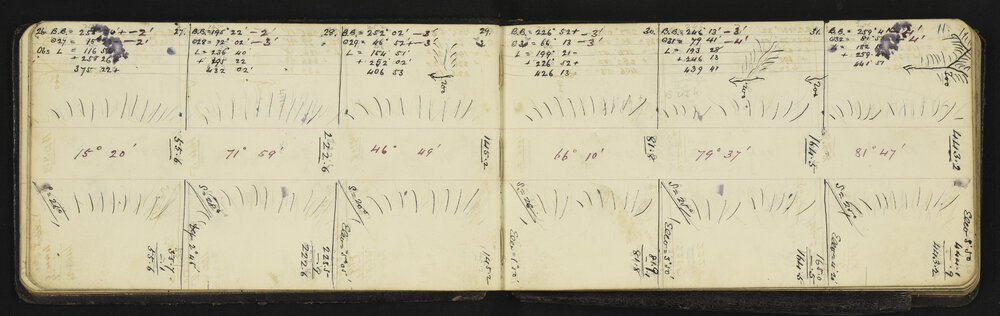 26. B.B. = 258° 24' + −2'
027 = 15° −2'
Obs. L = 116
+ 258 26
375
15° 20'
55.6
S = 26°
55.7
55.6
27. B.B. = 195° 22' −2
028 = 72° 02' −3'
L = 236 40
+ 195 22
432 02'
71° 59'
222.6
2° 45'
223.5
.9
222.6
28. B.B. = 252° 02' −3'
029 = 46° 52 + −3'
L = 154 51'
+ 252 02'
406 53
200
46° 49'
145.2
S = 20°
145.2
29. B.B. = 226° 52 + −3'
030 = 66 13 −3'
L = 199° 21 =
+ 226° 52 +
426 13
66° 10'
81.8
Elev = 1° 30'
81.9
.1
81.8
30. B.B. = 246 13' −3'
031 = 79 41 −4'
L = 193 28'
+ 246 13
439 41
200
79° 37'
164.5
S = 25°
165.0
.5
164.5
31. B.B. = 259° 41
032 =
L = 182
+ 259
441 51
200
81° 47'
443.2
Elev 3° 50
444.1
.9
443.2